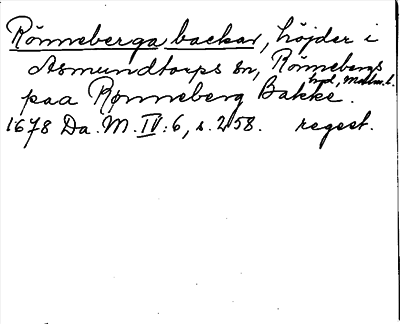 Rönneberga backar, höjder i
Asmundtorps sn, Rönnebergs
hd, Malm. l.
paa Rønneberg Bakke.
1678 Da. M. IV: 6, s. 258. regest.